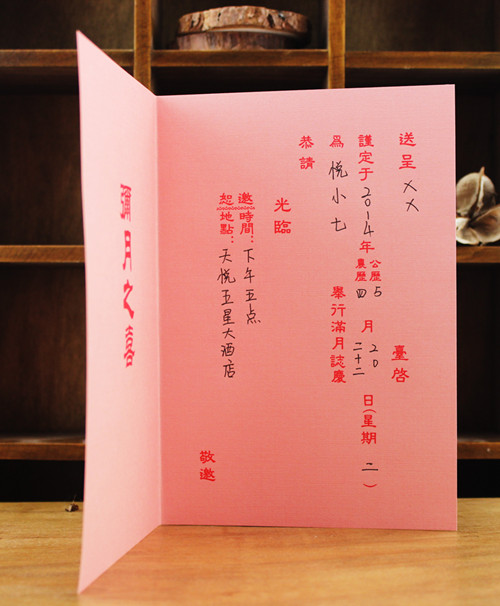 送呈 XX 臺啓
謹定于2014年 公歷5 農歷四 月 20 二十二 日(星期二)
爲悦小七 舉行滿月誌慶
恭請
光臨
邀時間:下午五点
恕地點:天悦五星大酒店
敬邀
彌月之喜